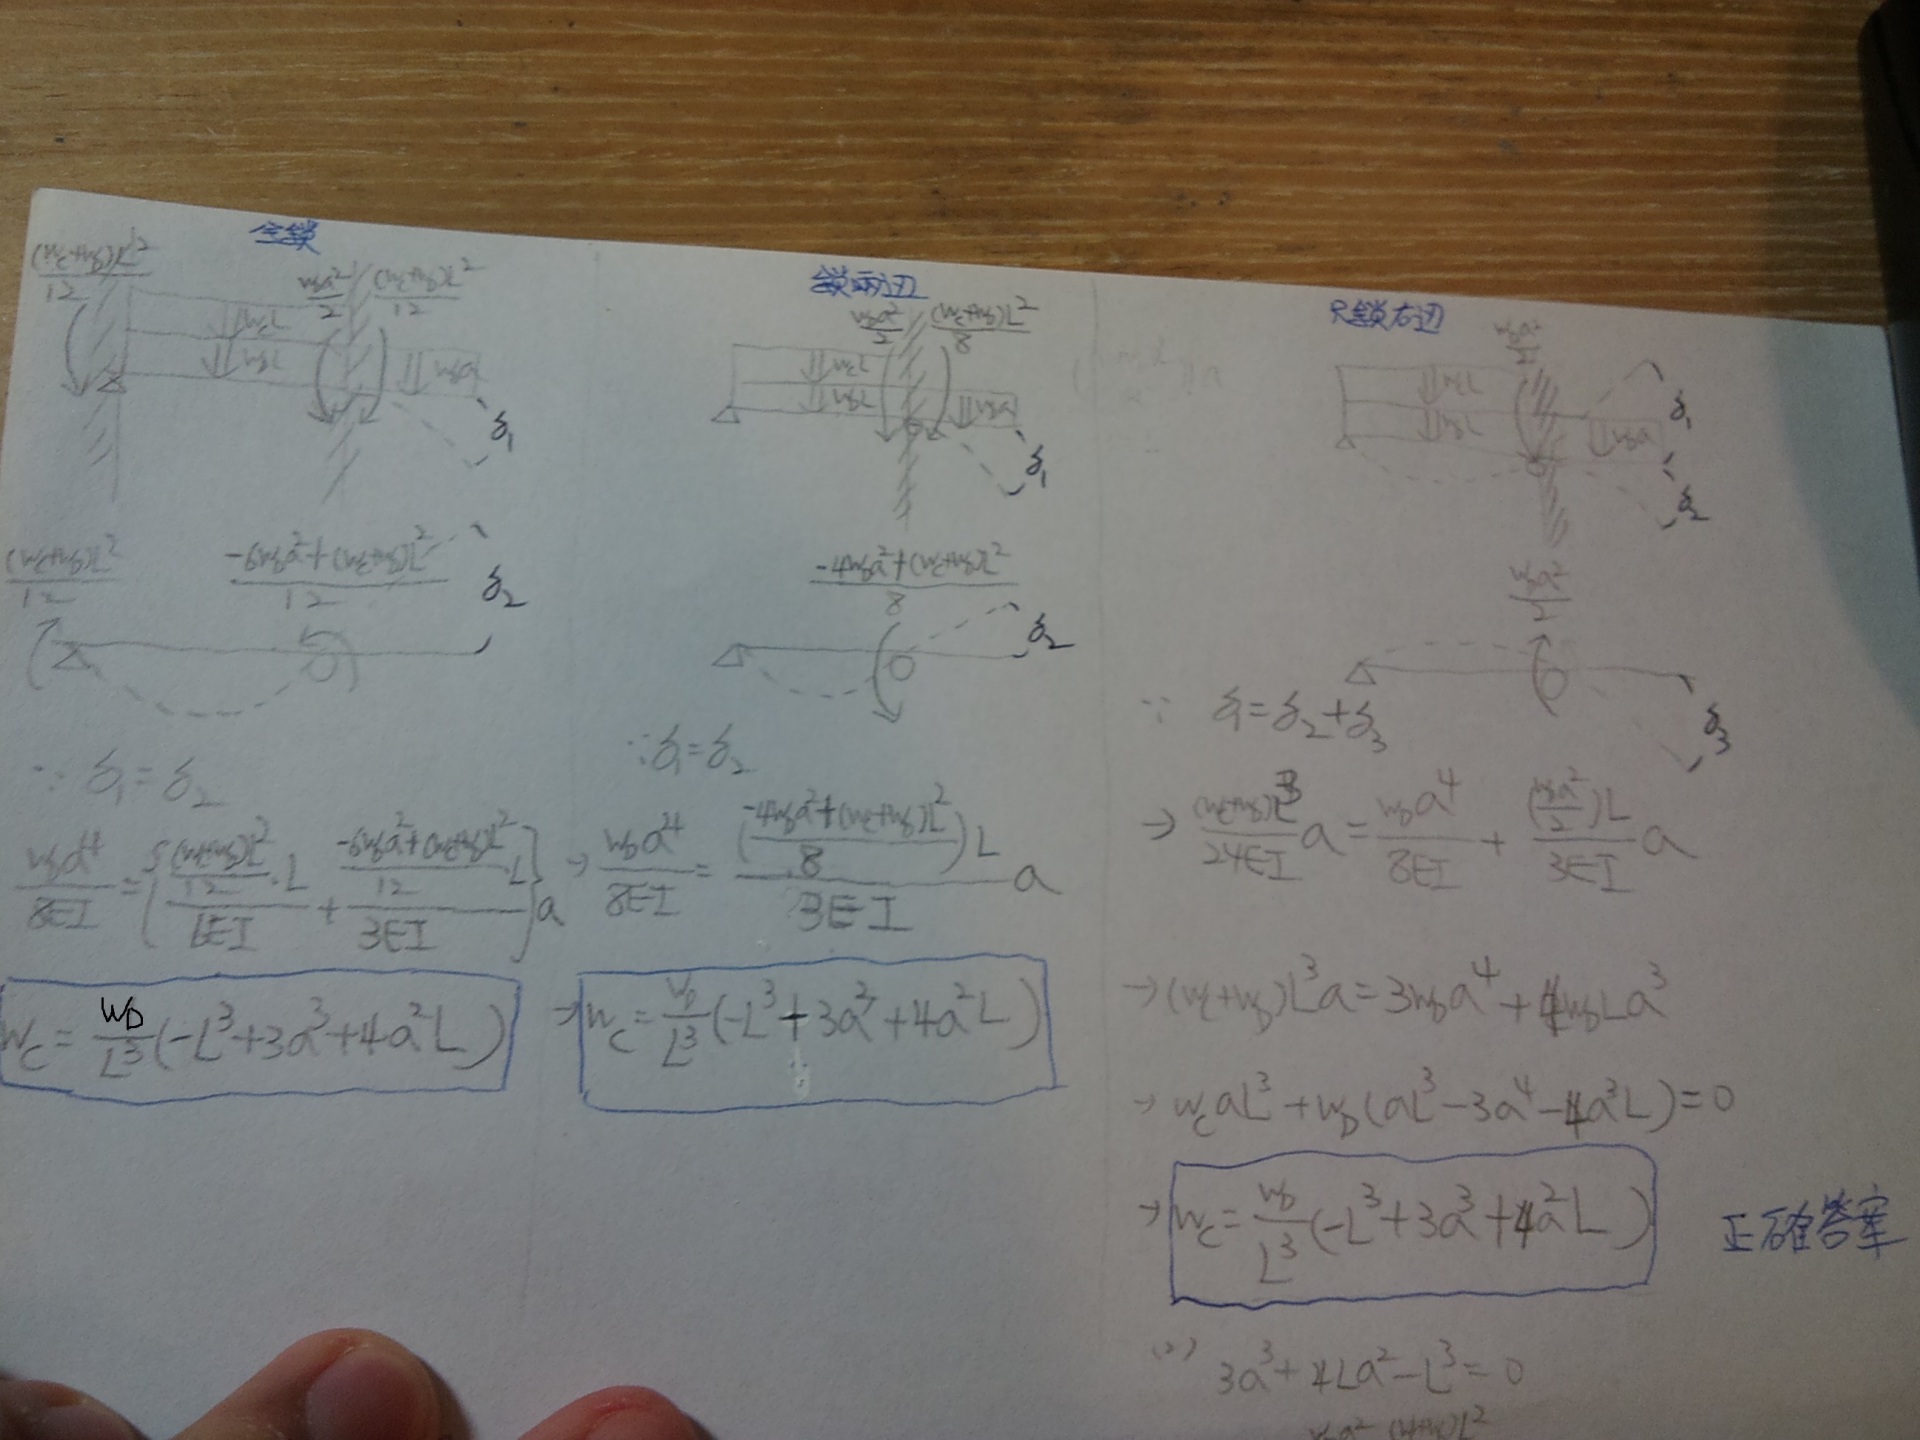 全鎖
(wc+wD)L²/12
wDa²/2 (wc+wD)L²/12
wcL
wDL
wDa
δ₁
(wc+wD)L²/12
(-6wDa²+(wc+wD)L²)/12
δ₂
∵ δ₁=δ₂
wDa⁴/8EI = {((wc+wD)L²/12·L)/6EI + ((-6wDa²+(wc+wD)L²)/12·L)/3EI}a
wc = wD/L³(-L³+3a³+4a²L)
鎖兩边
wDa²/2 (wc+wD)L²/8
wcL
wDL
wDa
δ₁
(-4wDa²+(wc+wD)L²)/8
δ₂
∵δ₁=δ₂
→ wDa⁴/8EI = (((-4wDa²+(wc+wD)L²)/8)L)/3EI a
→ wc = wD/L³(-L³+3a³+4a²L)
只鎖右边
wDa²/2
wcL
wDL
wDa
δ₁
δ₂
wDa²/2
δ₃
∵ δ₁=δ₂+δ₃
→ (wc+wD)L³/24EI a = wDa⁴/8EI + ((wDa²/2)L)/3EI a
→(wc+wD)L³a=3wDa⁴+4wDLa³
→ wcaL³+wD(aL³-3a⁴-4a³L)=0
→ wc = wD/L³(-L³+3a³+4a²L)
正確答案
(2) 3a³+4La²-L³=0